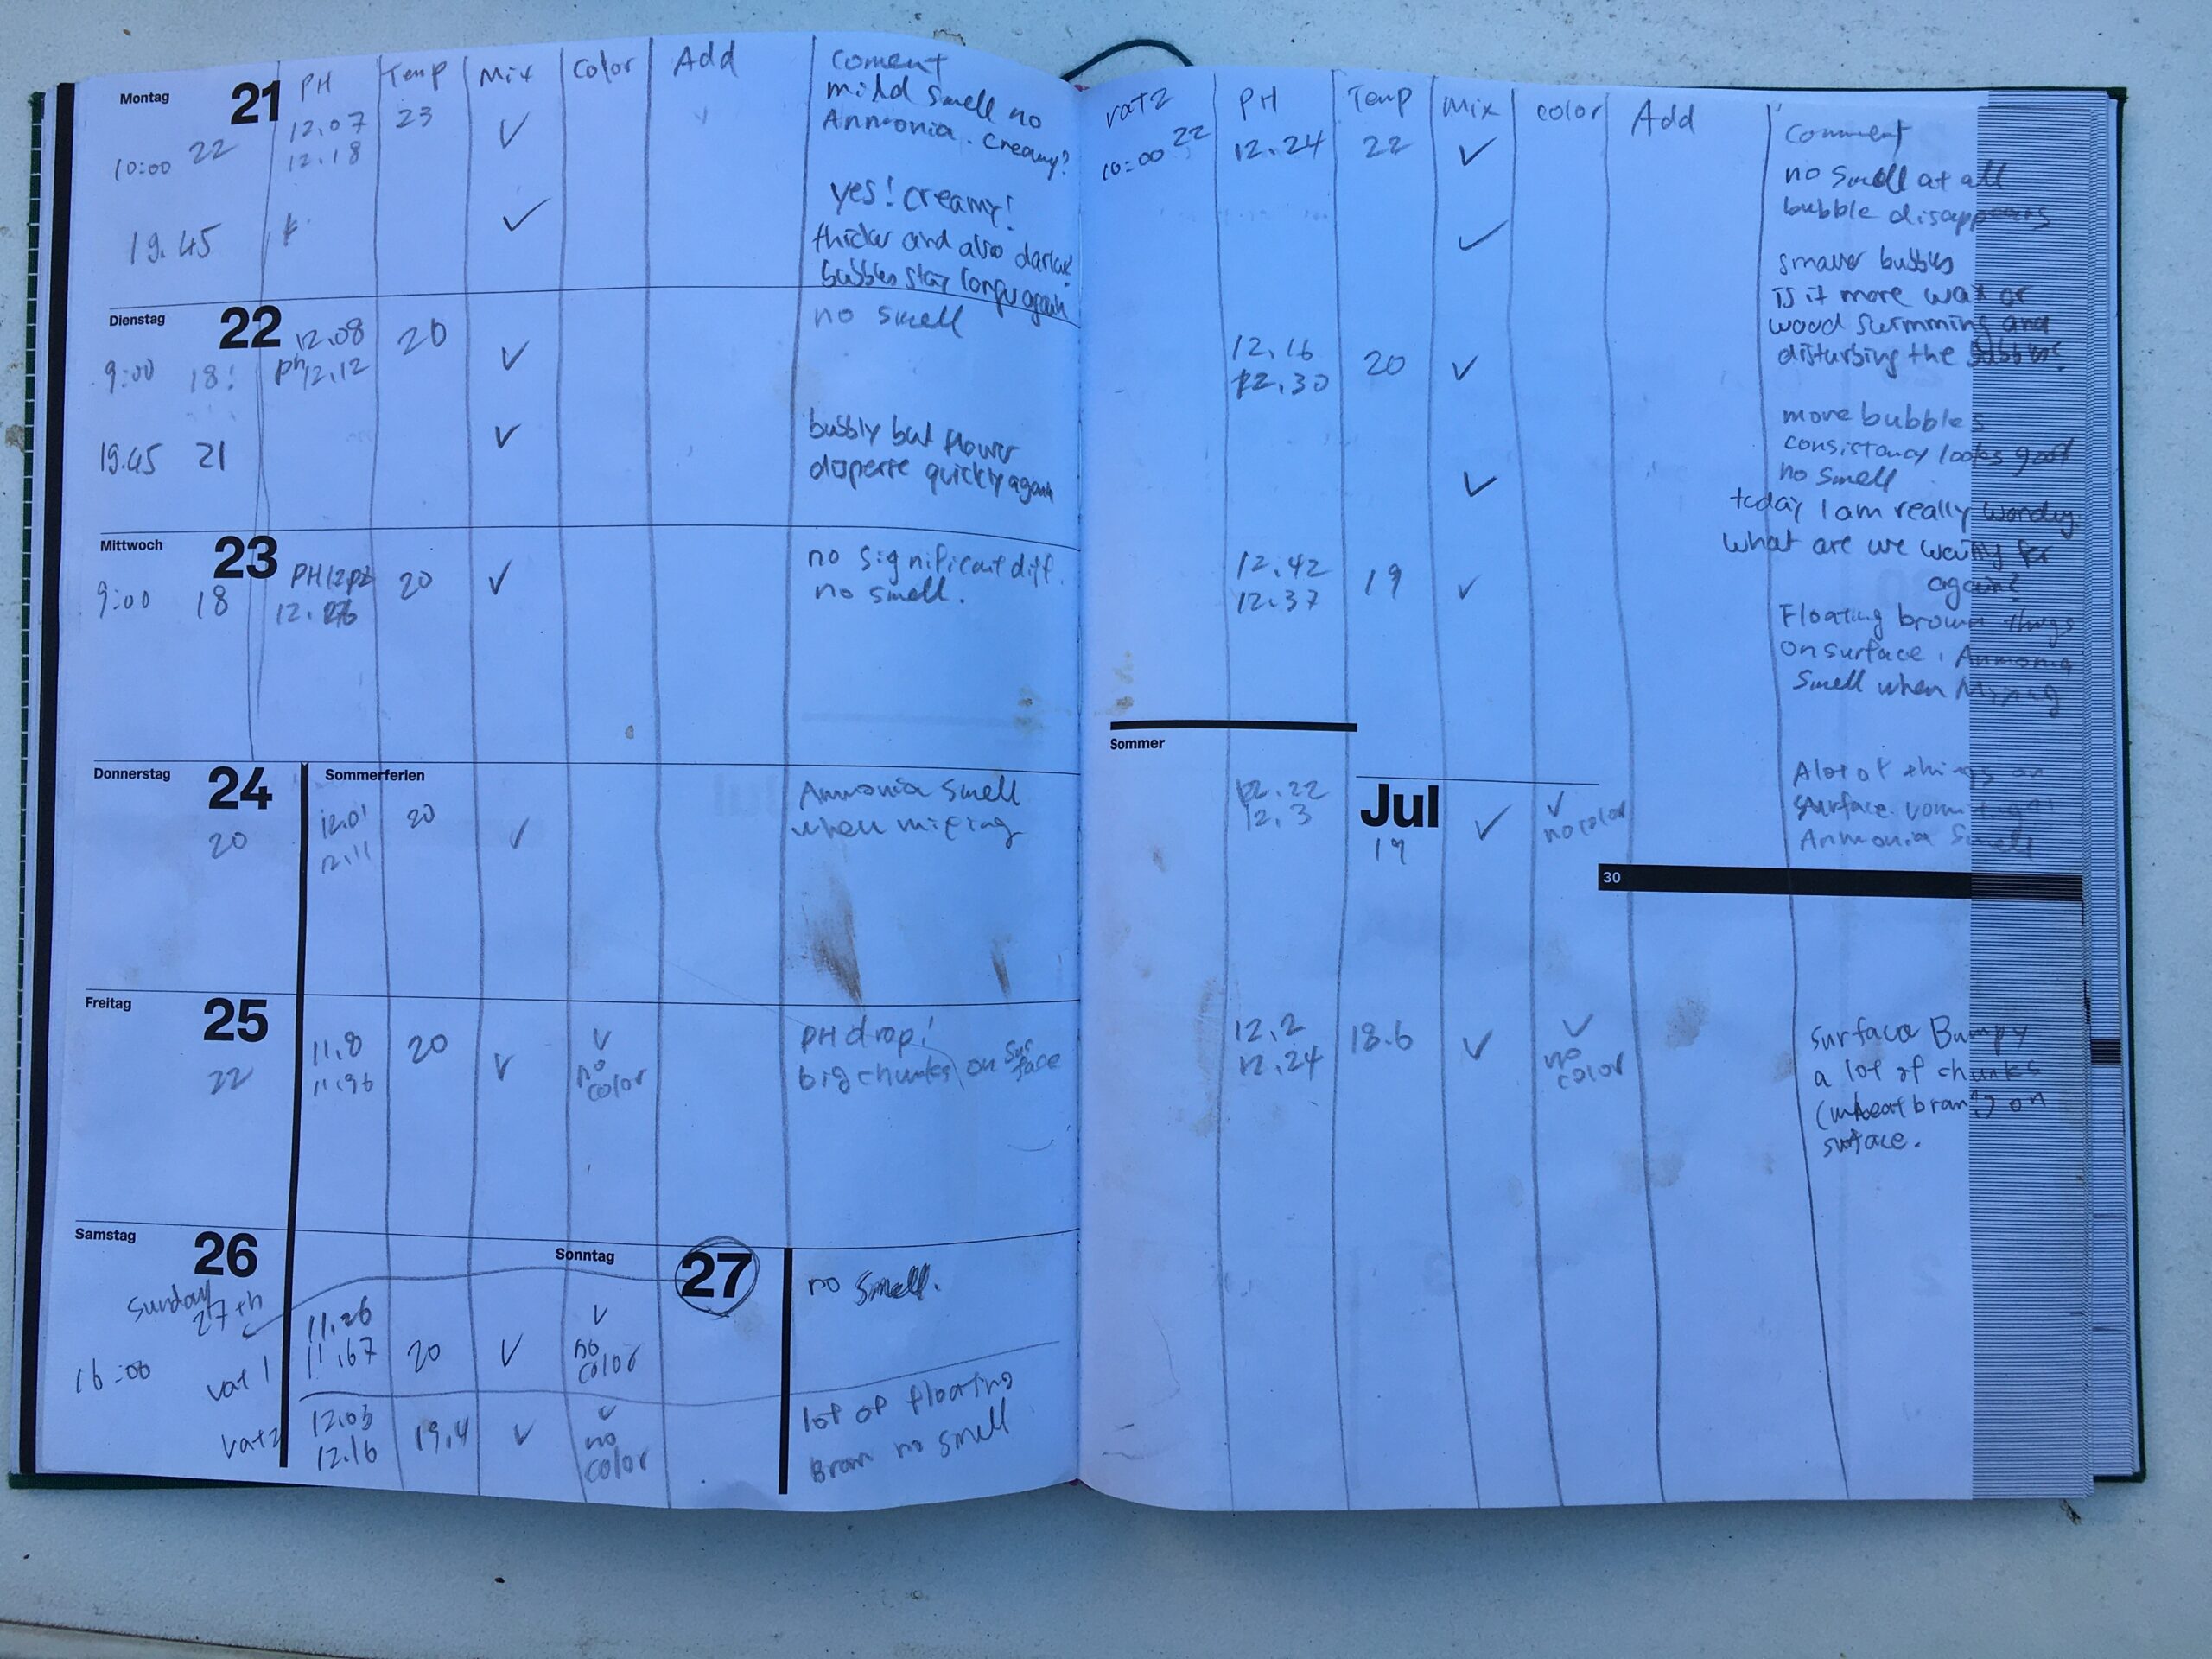 Montag 21 PH Temp Mix Color Add Coment
10:00 22 12.07 23 ✓ mild smell no
12.18 Ammonia. Creamy?
19.45 ✓ yes! Creamy!
thicker and also darker
bubbles stay longer again
Dienstag 22 12.08 20 no smell
9:00 18! ph 12.12 ✓
19.45 21 ✓ bubbly but flower
disperse quickly again
Mittwoch 23 20 ✓ no significant diff.
9:00 18 no smell.
Donnerstag 24 Sommerferien
20 12.01 20 ✓ Ammonia smell
12.11 when mixing
Freitag 25
22 11.8 20 ✓ ✓ PH drop!
11.96 no color big chunks on surface
Samstag 26 Sonntag 27
Sunday 27th
no smell.
16:00 vat 1 11.26 ✓
11.67 20 ✓ no color
vat 2 12.03 ✓ lot of floating
12.16 19,4 ✓ no color Bran no smell
vat 2 PH Temp Mix color Add Comment
10:00 22 12.24 22 ✓ no smell at all
bubble disappears
✓ smaller bubbles
is it more wax or
wood swimming and
disturbing the bubbles?
12.16 20 ✓
12.30
more bubbles
consistancy looks good
✓ no smell
today I am really wondering
what are we waiting for
again?
12.42 19 ✓
12.37
Floating brown things
on surface. Ammonia
smell when Mixing
Sommer
12.22 Jul ✓ ✓ A lot of things on
12.3 19 no color surface
Ammonia smell
30
12.2 18.6 ✓ ✓ surface Bumpy
12.24 no color a lot of chunks
(wheat bran?) on
surface.